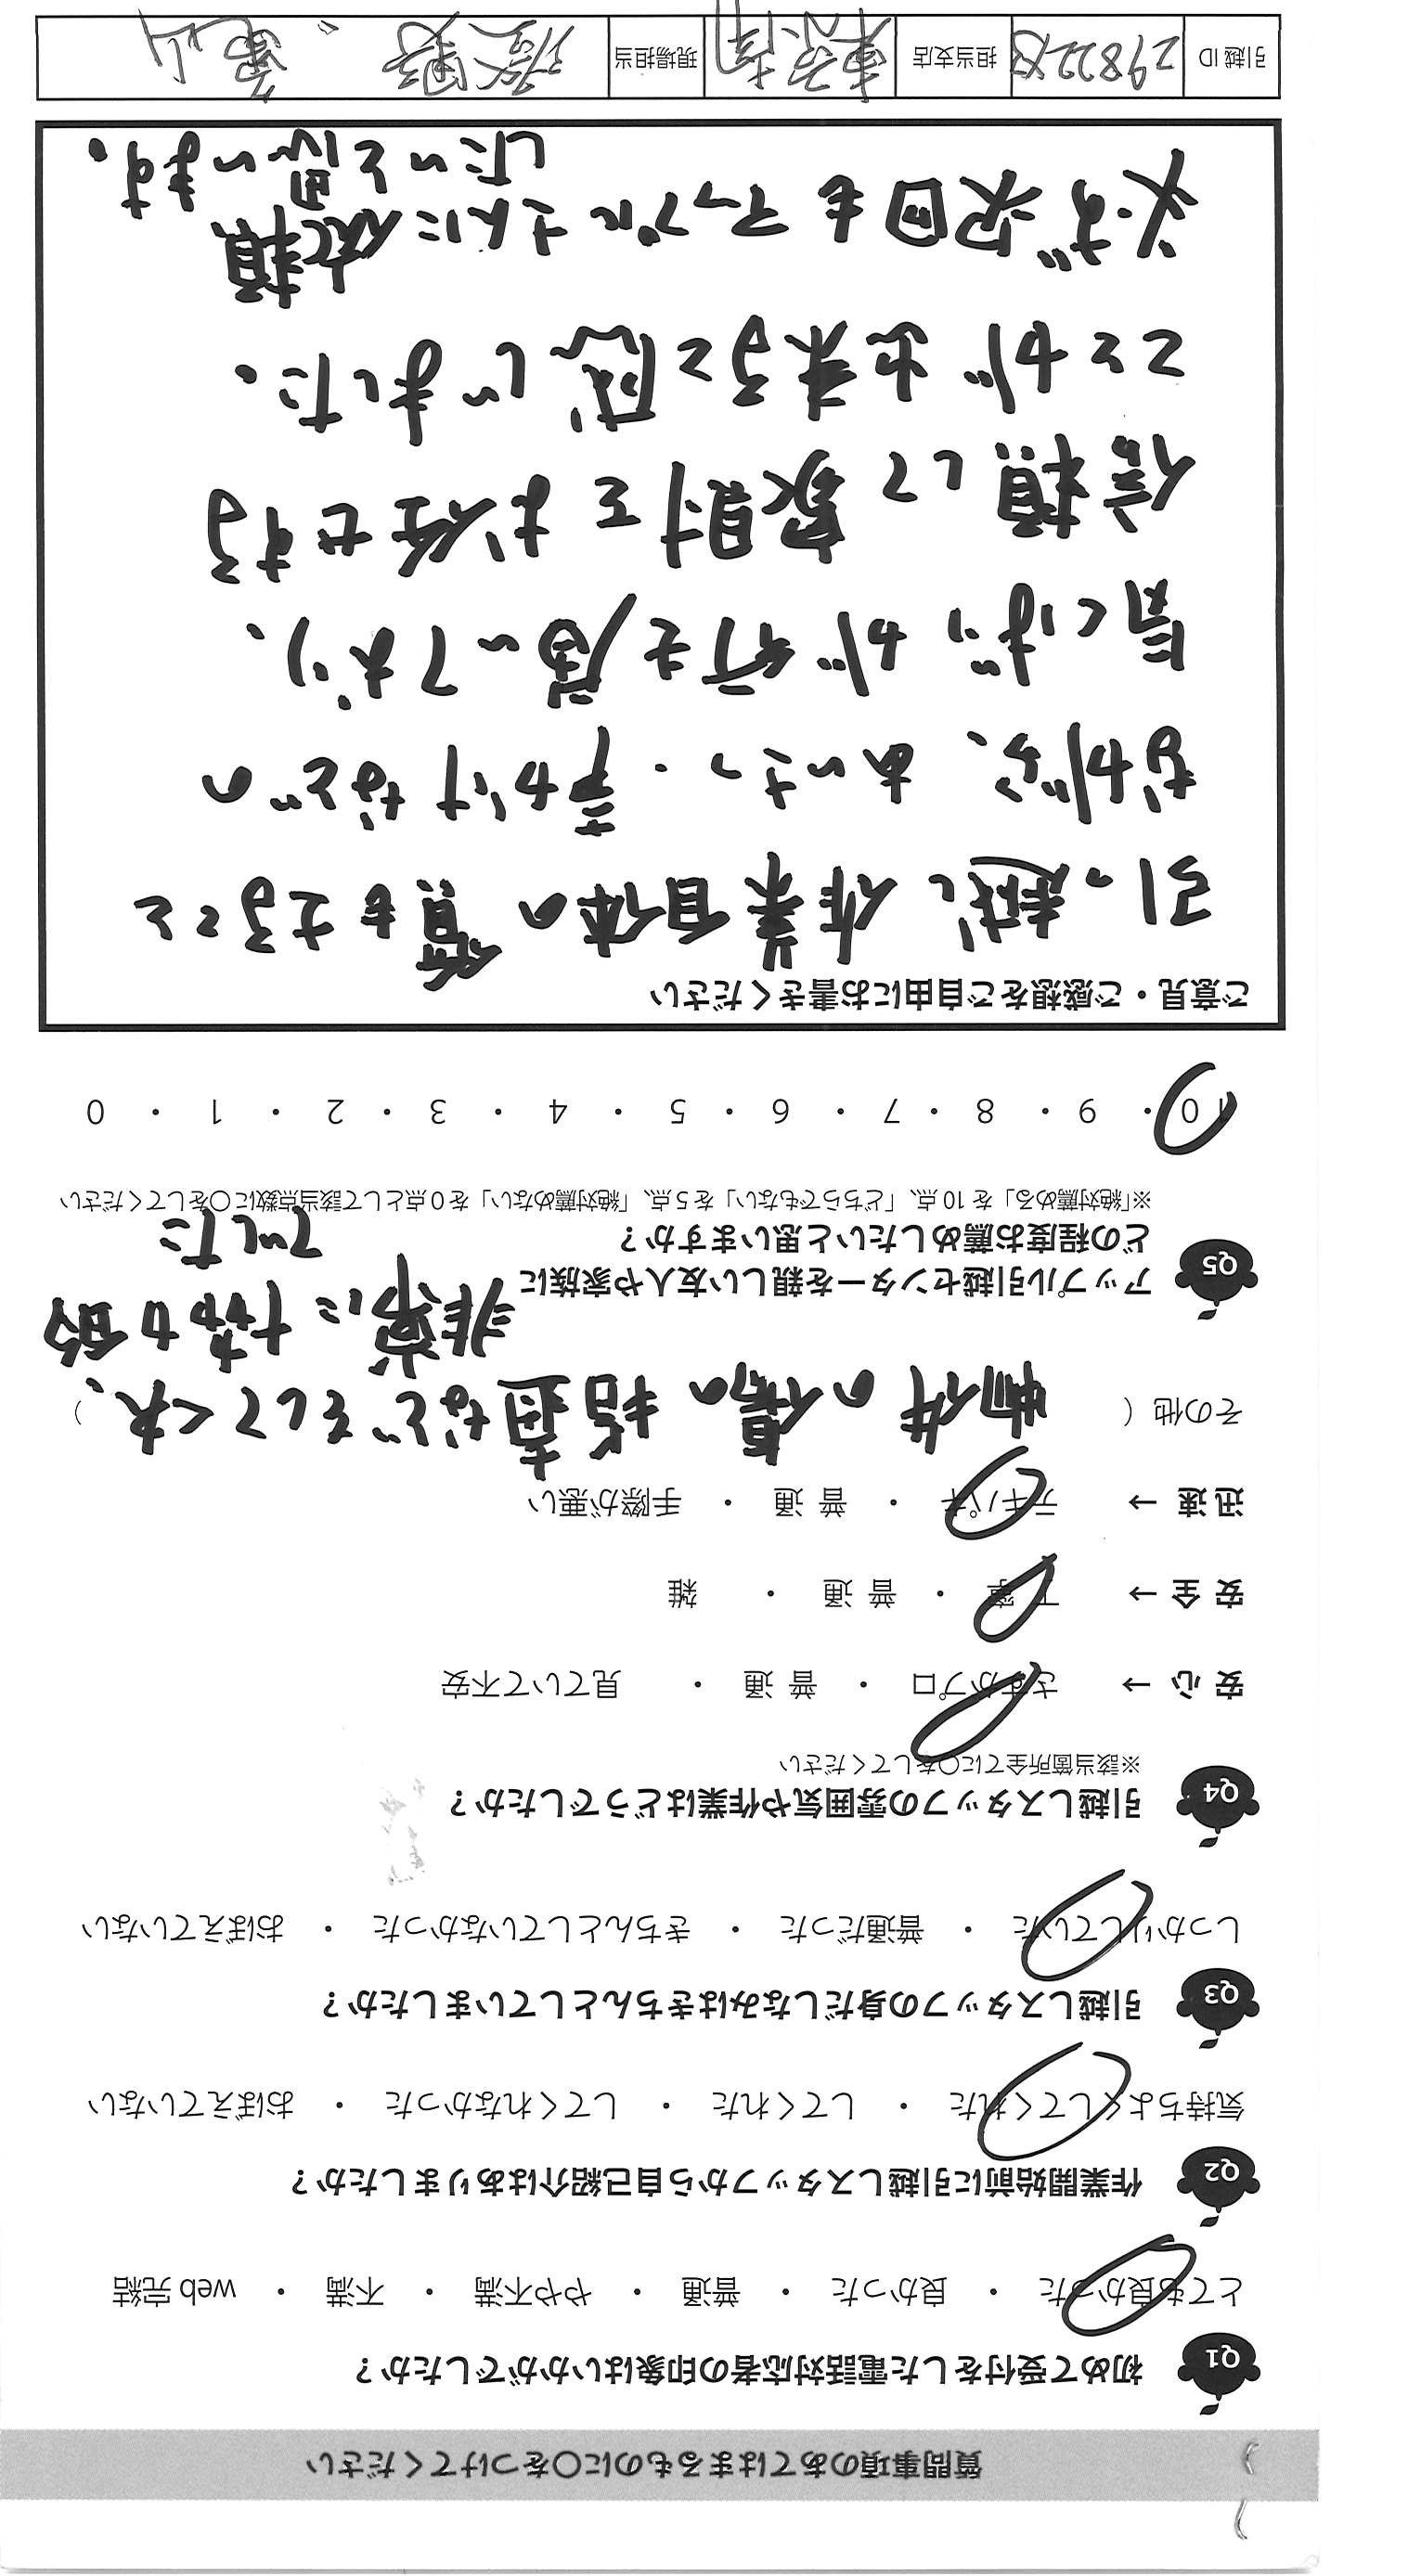 質問事項のあてはまるものに〇をつけてください
Q1 初めて受付をした電話対応者の印象はいかがでしたか？
とても良かった ・ 良かった ・ 普通 ・ やや不満 ・ 不満 ・ web 完結
Q2 作業開始前に引越しスタッフから自己紹介はありましたか？
気持ちよくしてくれた ・ してくれた ・ してくれなかった ・ おぼえていない
Q3 引越しスタッフの身だしなみはきちんとしていましたか？
しっかりしていた ・ 普通だった ・ きちんとしていなかった ・ おぼえていない
Q4 引越しスタッフの雰囲気や作業はどうでしたか？
※該当箇所全てに〇をしてください
安 心 → さすがプロ ・ 普 通 ・ 見ていて不安
安 全 → 丁 寧 ・ 普 通 ・ 雑
迅 速 → テキパキ ・ 普 通 ・ 手際が悪い
その他（ 物件の傷の指摘などをしてくれ、 ）
非常に協力的
でした
Q5 アップル引越センターを親しい友人や家族に
どの程度お薦めしたいと思いますか？
※「絶対薦める」を 10 点、「どちらでもない」を 5 点、「絶対薦めない」を 0 点として該当点数に〇をしてください
10 ・ 9 ・ 8 ・ 7 ・ 6 ・ 5 ・ 4 ・ 3 ・ 2 ・ 1 ・ 0
ご意見・ご感想をご自由にお書きください
引っ越し作業自体の質もさること
ながら、あいさつ・声かけなどの
気くばりが行き届いており、
信頼して家財をお任せする
ことが出来ると感じました。
必ず次回もアップルさんに依頼
したいと思います。
引越 ID 担当支店 東京南 現場担当